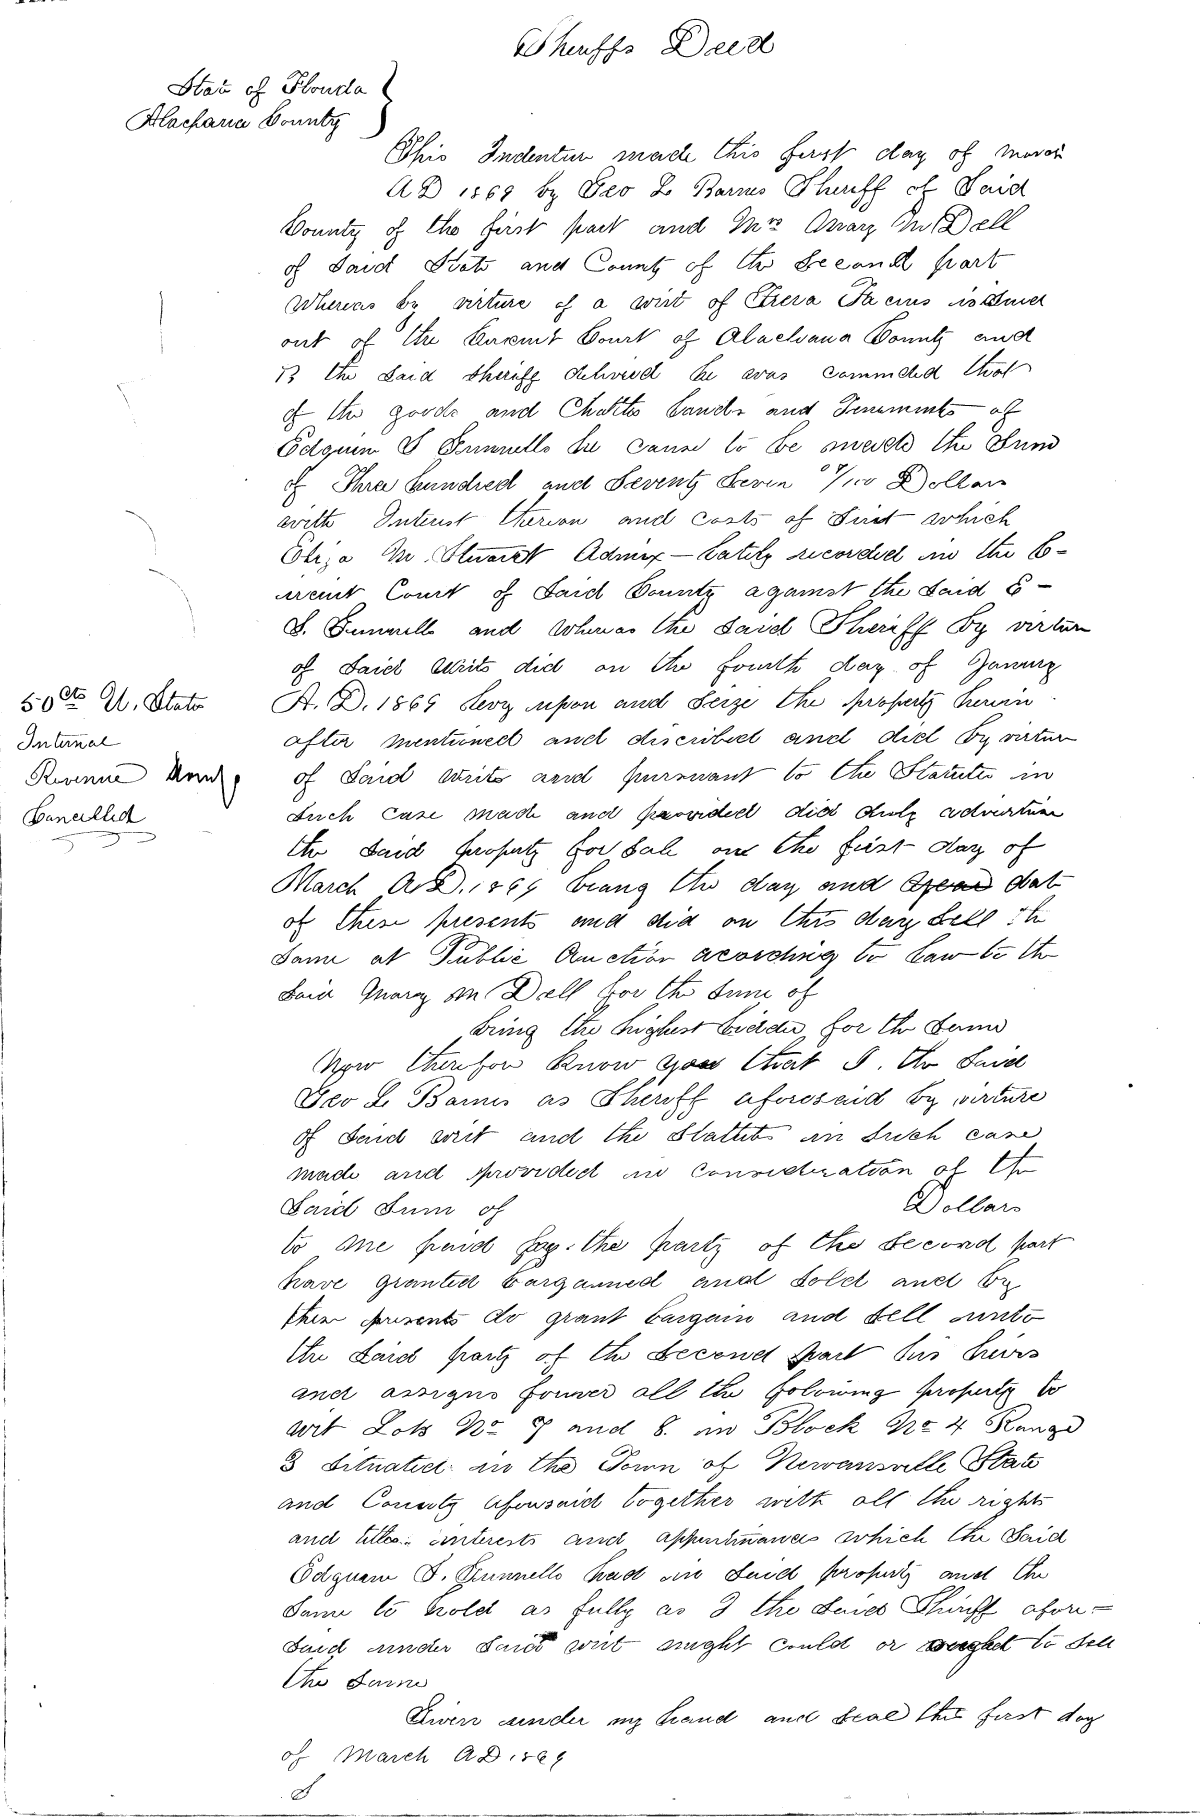 Sheriffs Deed
State of Florida
Alachua County
This Indenture made this first day of March
AD 1869 by Geo L Barnes Sheriff of Said
County of the first part and Mrs Mary M Dell
of Said State and County of the Second part
Whereas by virture of a writ of Fiera Facius issued
out of the Circuit Court of Alachua County and
to the Said Sheriff delivered he was commded that
of the goods and Chattls Lands and Tenements of
S he cause to be made the Sum
of Three hundred and Seventy Seven /100 Dollars
with Interest thereon and costs of Suit which
Eliza M. Stuart Admix — Lately recorded in the C-
ircuit Court of Said County against the Said E -
S. and whereas the Said Sheriff by virture
of Said writs did on the fourth day of January
A. D. 1869 levy upon and Seize the property herein
after mentioned and discribed and did by virture
of Said writs and pursuant to the Statutes in
Such case made and provided did duly advertise
the Said property for Sale on the first day of
March A.D. 1869 being the day and year date
of these presents and did on this day Sell the
Same at Public Auction acording to Law to the
Said Mary M Dell for the Sum of
being the highest bidder for the Same
Now therefore Know you that I. the Said
Geo L Barnes as Sheriff aforesaid by virture
of Said writ and the Stattuts in Such case
made and provided in consideration of the
Said Sum of Dollars
to me paid by the party of the Second part
have granted bargained and Sold and by
these presents do grant bargain and Sell unto
the Said party of the Second part his heirs
and assigns forever all the folowing property to
wit Lots No 7 and 8. in Block No 4 Range
3 Situated in the Town of Newansville State
and County aforesaid together with all the rights
and titles interests and appertinances which the Said
S. had in Said property and the
Same to hold as fully as I the Said Sheriff afore=
Said under Said writ might could or ought to Sell
the Same
Given under my hand and Seal this first day
of March AD 1869
50cts U. State
Internal
Revenue
Cancelled